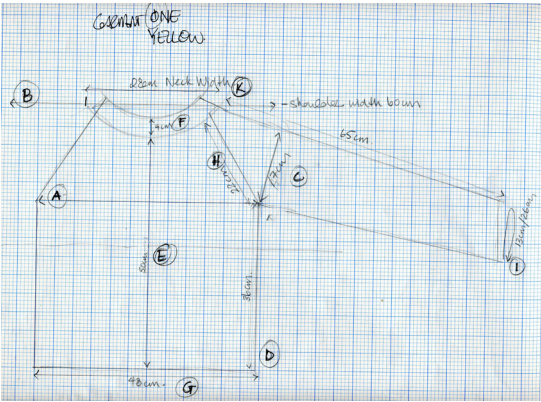 GARMENT ONE
YELLOW
28cm Neck Width
K
B
- shoulder width 60cm
F
4cm
65cm
H
22cm
17cm
C
A
13cm/26cm
E
50cm
36cm
I
D
48cm.
G